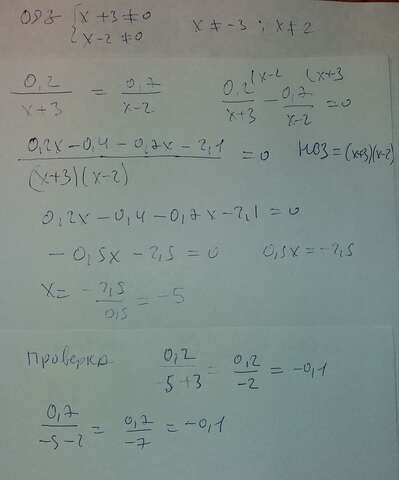 ОДЗ { x + 3 ≠ 0
x - 2 ≠ 0 x ≠ -3 ; x ≠ 2
0,2/(x+3) = 0,7/(x-2) 0,2 (x-2/(x+3) - 0,7 (x+3/(x-2) = 0
(0,2x - 0,4 - 0,7x - 2,1)/((x+3)(x-2)) = 0 НОЗ = (x+3)(x-2)
0,2x - 0,4 - 0,7x - 2,1 = 0
- 0,5x - 2,5 = 0 0,5x = -2,5
x = - 2,5/0,5 = -5
Проверка 0,2/(-5+3) = 0,2/-2 = -0,1
0,7/(-5-2) = 0,7/-7 = -0,1